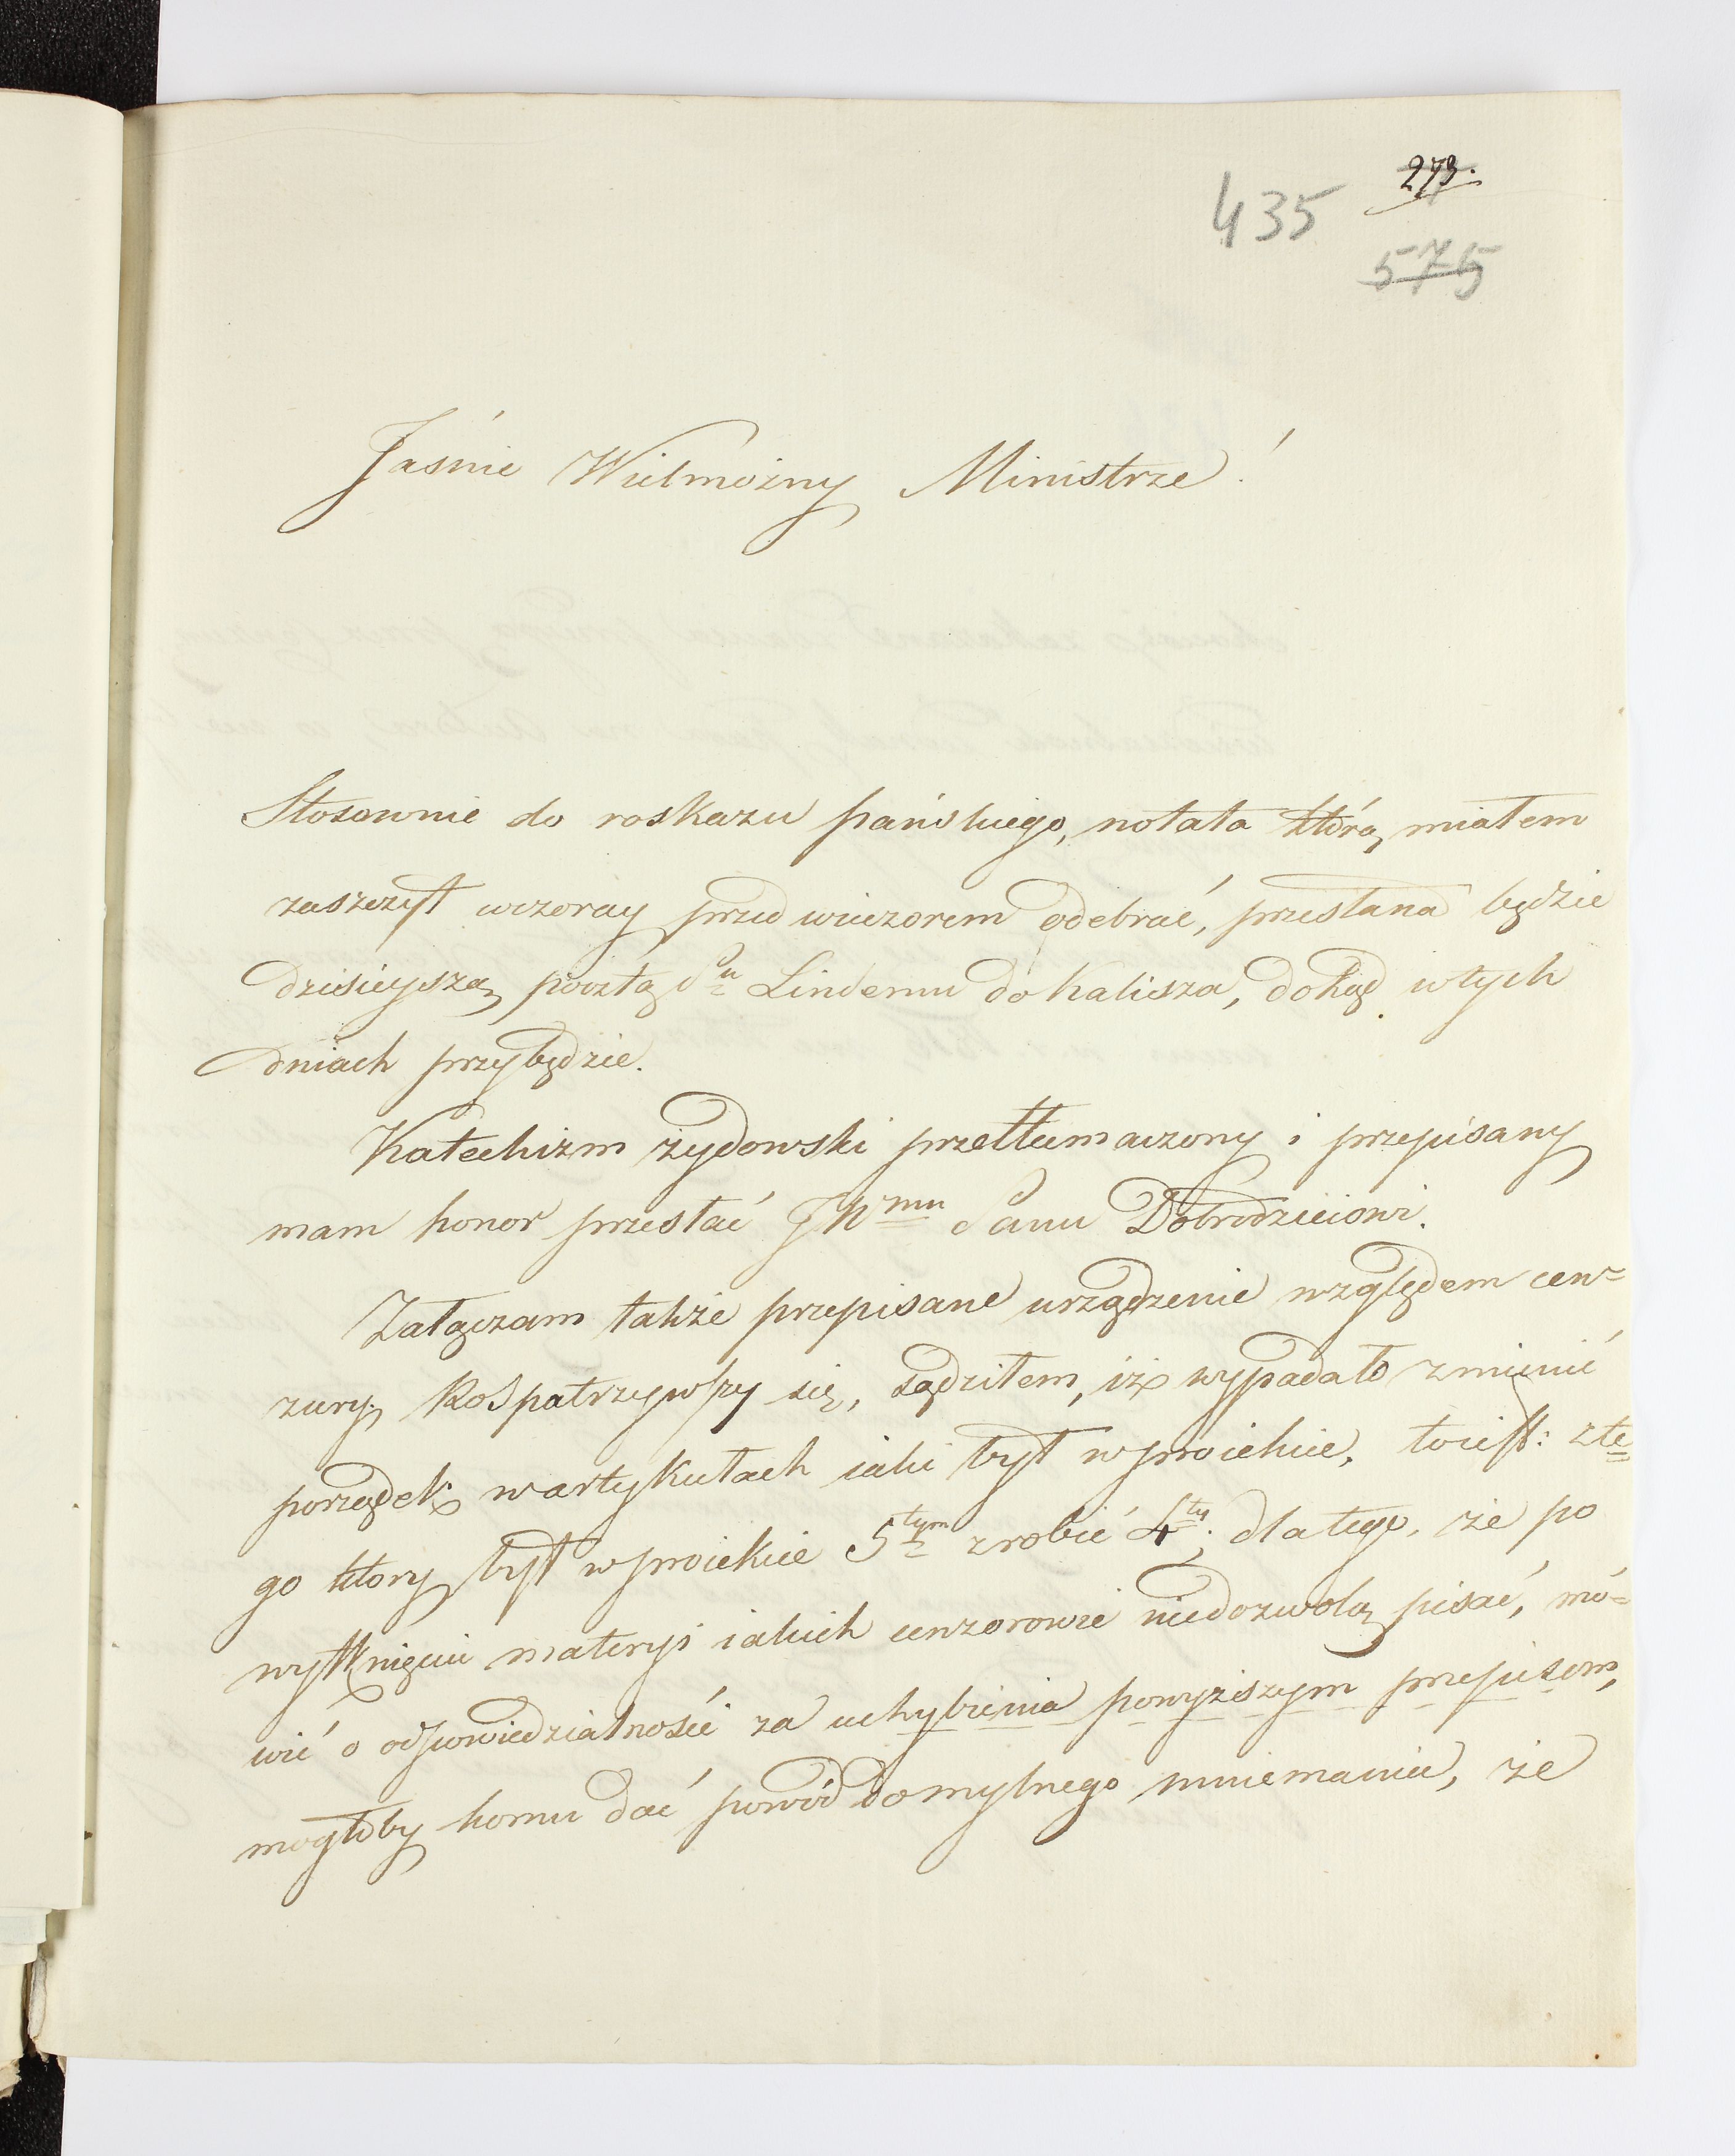 273.
435
575
Jaśnie Wielmożny Ministrze!
Stosownie do roskazu pańskiego, notata którą miałem
zaszczyt wczoray przed wieczorem odebrać, przesłana będzie
dzisieyszą pocztą Pu Lindemu do Kalisza, dokąd wtych
dniach przybędzie.
Katechizm żydowski przetłumaczony i przepisany
mam honor przesłać JWmu Panu Dobrodzieiowi.
Załączam także przepisane urządzenie względem cen=
zury. Rospatrzywszy się, sądziłem, iż wypadało zmienić
porządek w artykułach iaki był w proiekcie, toiest: zte=
go który był w proiekcie 5tym zrobić 4ty; dla tego, że po
wytknięciu materyi iakich cenzorowie niedozwolą pisać, mó=
wić o odpowiedzialności za uchybienia powyższym przepisom,
mogłoby komu dać powód do mylnego mniemania, że